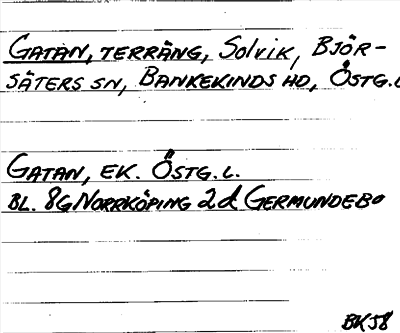 GATAN, TERRÄNG, Solvik, BJÖR-
SÄTERS SN, BANKEKINDS HD, ÖSTG.L
GATAN, EK. ÖSTG.L.
BL. 8G NORRKÖPING 2d GERMUNDEBO
BK58